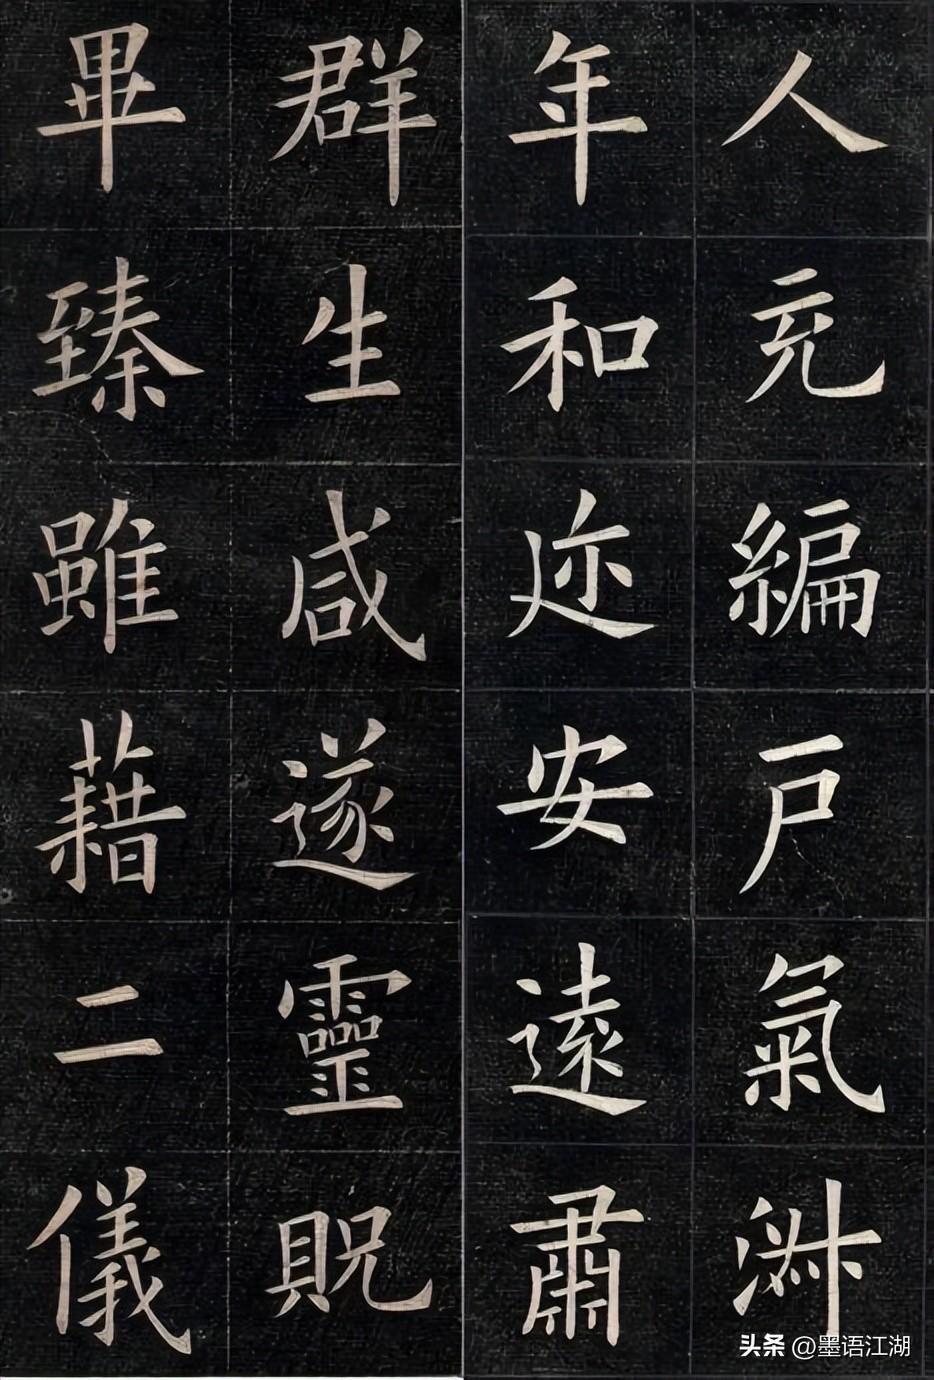 人充編戸氣淑
年和迩安遠肅
群生咸遂靈貺
畢臻雖藉二儀
头条 @墨语江湖